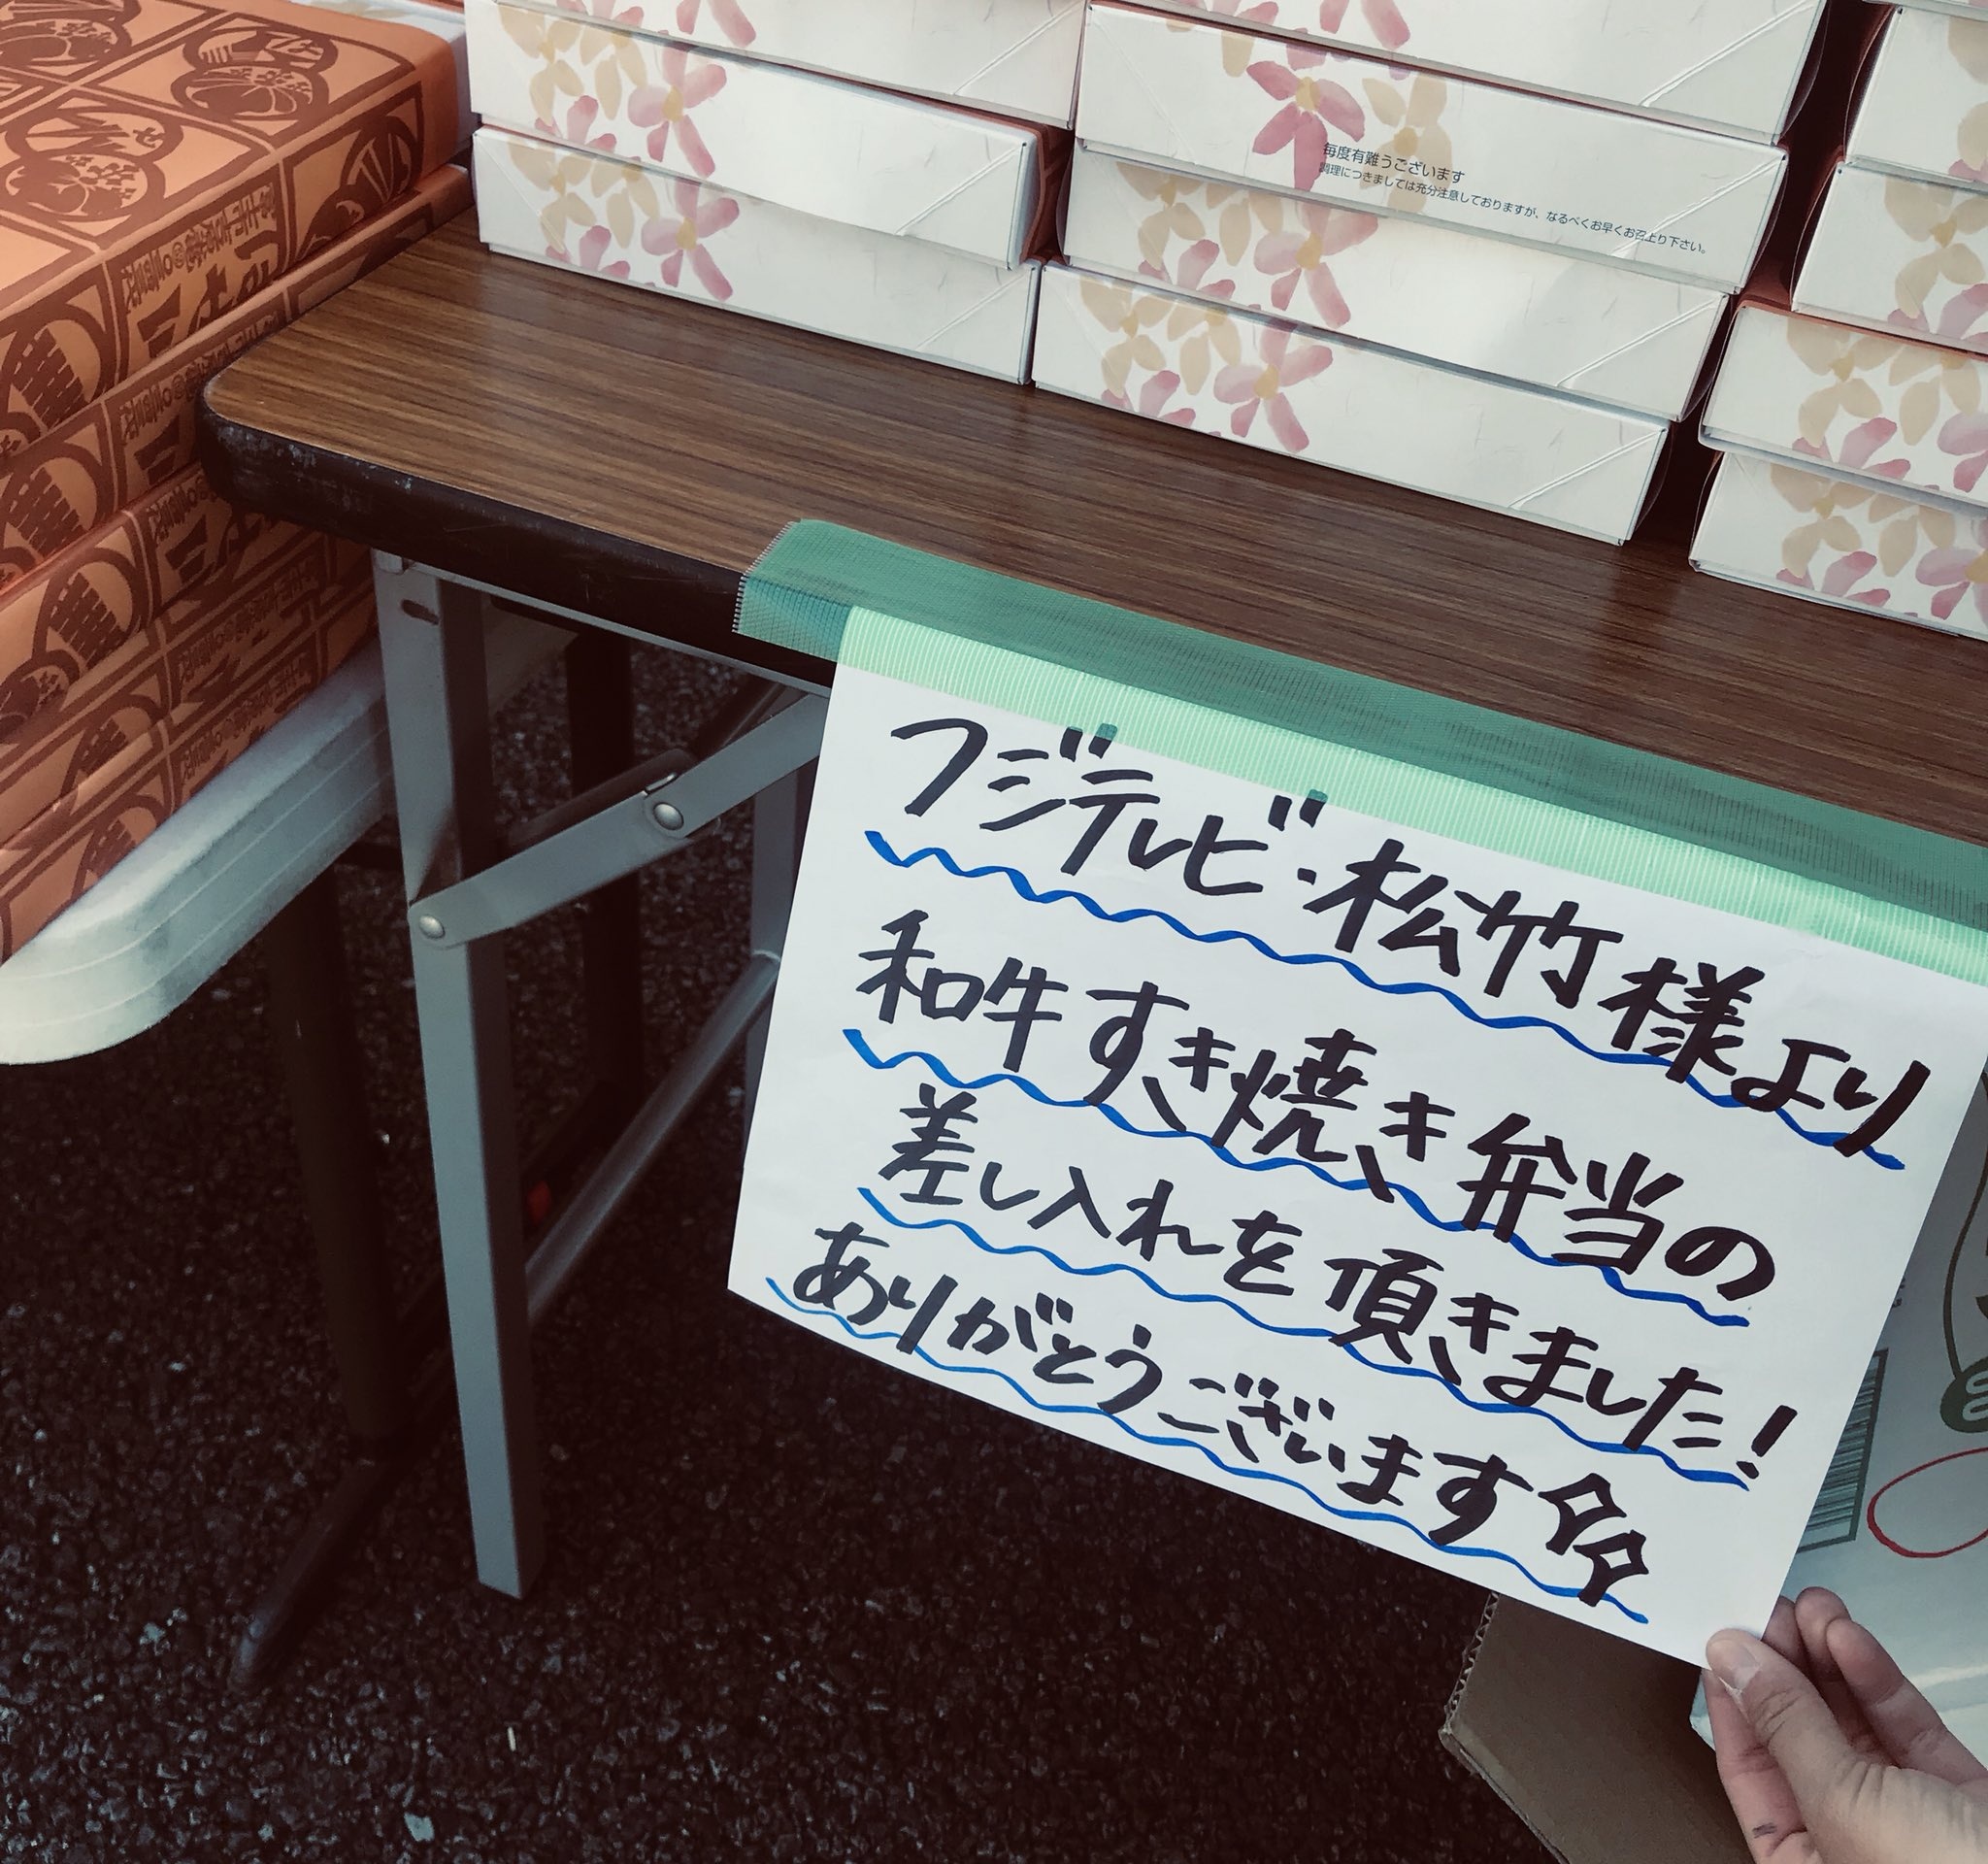 毎度有難うございます
調理につきましては充分注意しておりますが、なるべくお早くお召上り下さい。
フジテレビ・松竹様より
和牛すき焼き弁当の
差し入れを頂きました!
ありがとうございます